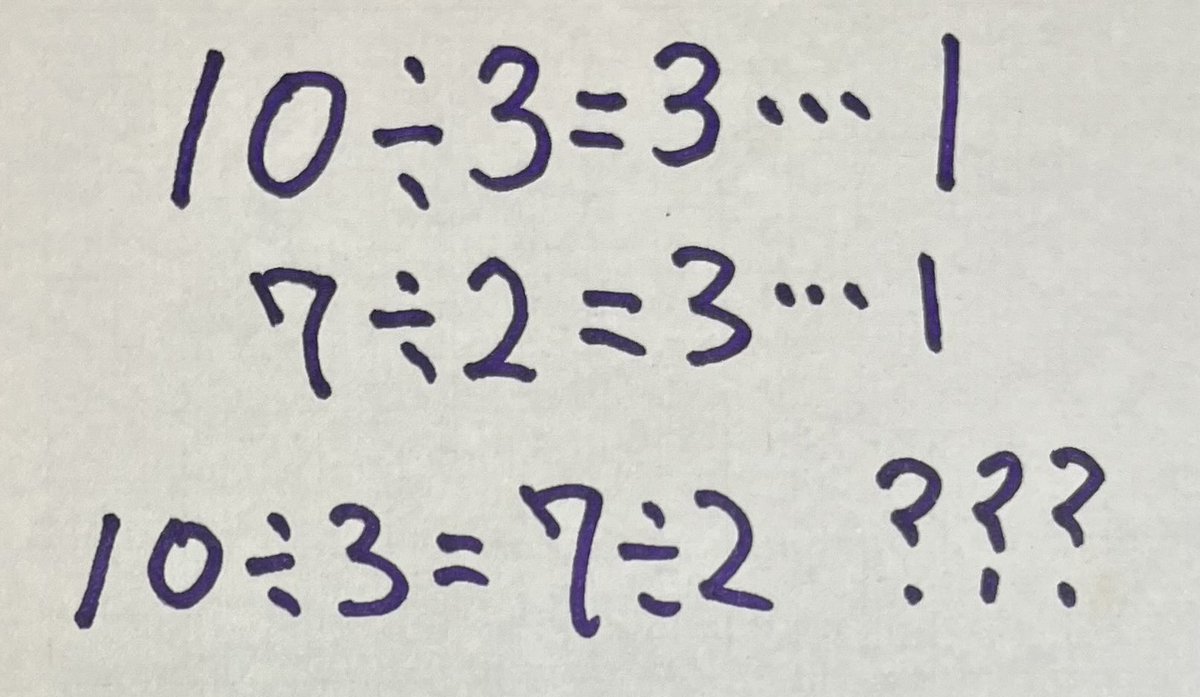 10÷3=3…1
7÷2=3…1
10÷3=7÷2 ???